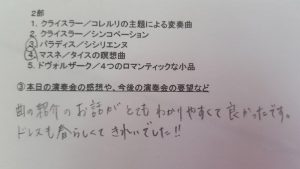 2部
1. クライスラー／コレルリの主題による変奏曲
2. クライスラー／シンコペーション
3. パラディス／シシリエンヌ
4. マスネ／タイスの瞑想曲
5. ドヴォルザーク／4つのロマンティックな小品
③本日の演奏会の感想や、今後の演奏会の要望など
曲の紹介のお話がとてもわかりやすくて良かったです。
ドレスも春らしくてきれいでした!!